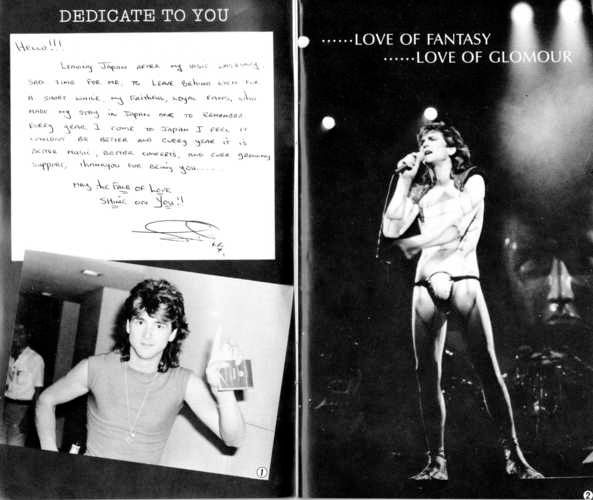 DEDICATE TO YOU
Hello!!!
Leaving Japan after my visit was a very
sad time for me, to leave behind even for
a short while, my faithful, loyal fans, who
made my stay in Japan one to remember
every year I come to Japan I feel it
couldn't be better and every year it is
better music, better concerts, and ever growing
support, thankyou for being you......
May the Face of Love
Shine on You!!
......LOVE OF FANTASY
......LOVE OF GLOMOUR
1
2